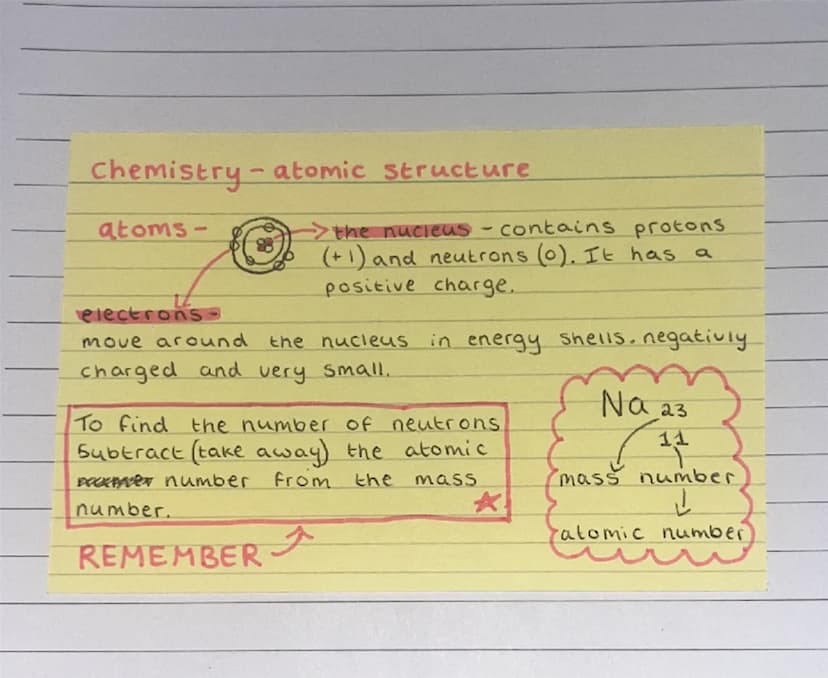 Chemistry - atomic structure
atoms -
the nucleus - contains protons
(+1) and neutrons (0). It has a
positive charge.
electrons -
move around the nucleus in energy shells. negativly
charged and very small.
To find the number of neutrons
subtract (take away) the atomic
number from the mass
number.
REMEMBER
Na 23
11
mass number
atomic number